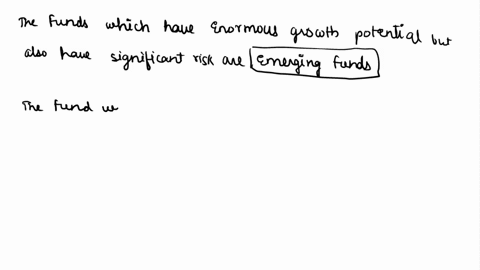 The Funds which have Enormous growth potential but
also have significant risk are Emerging Funds
The Fund w